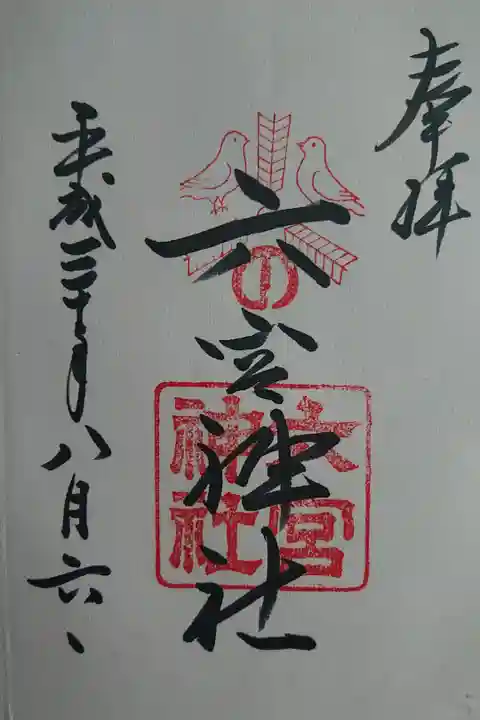 奉拝
六宮神社
六宮
神社
平成三十年八月六日